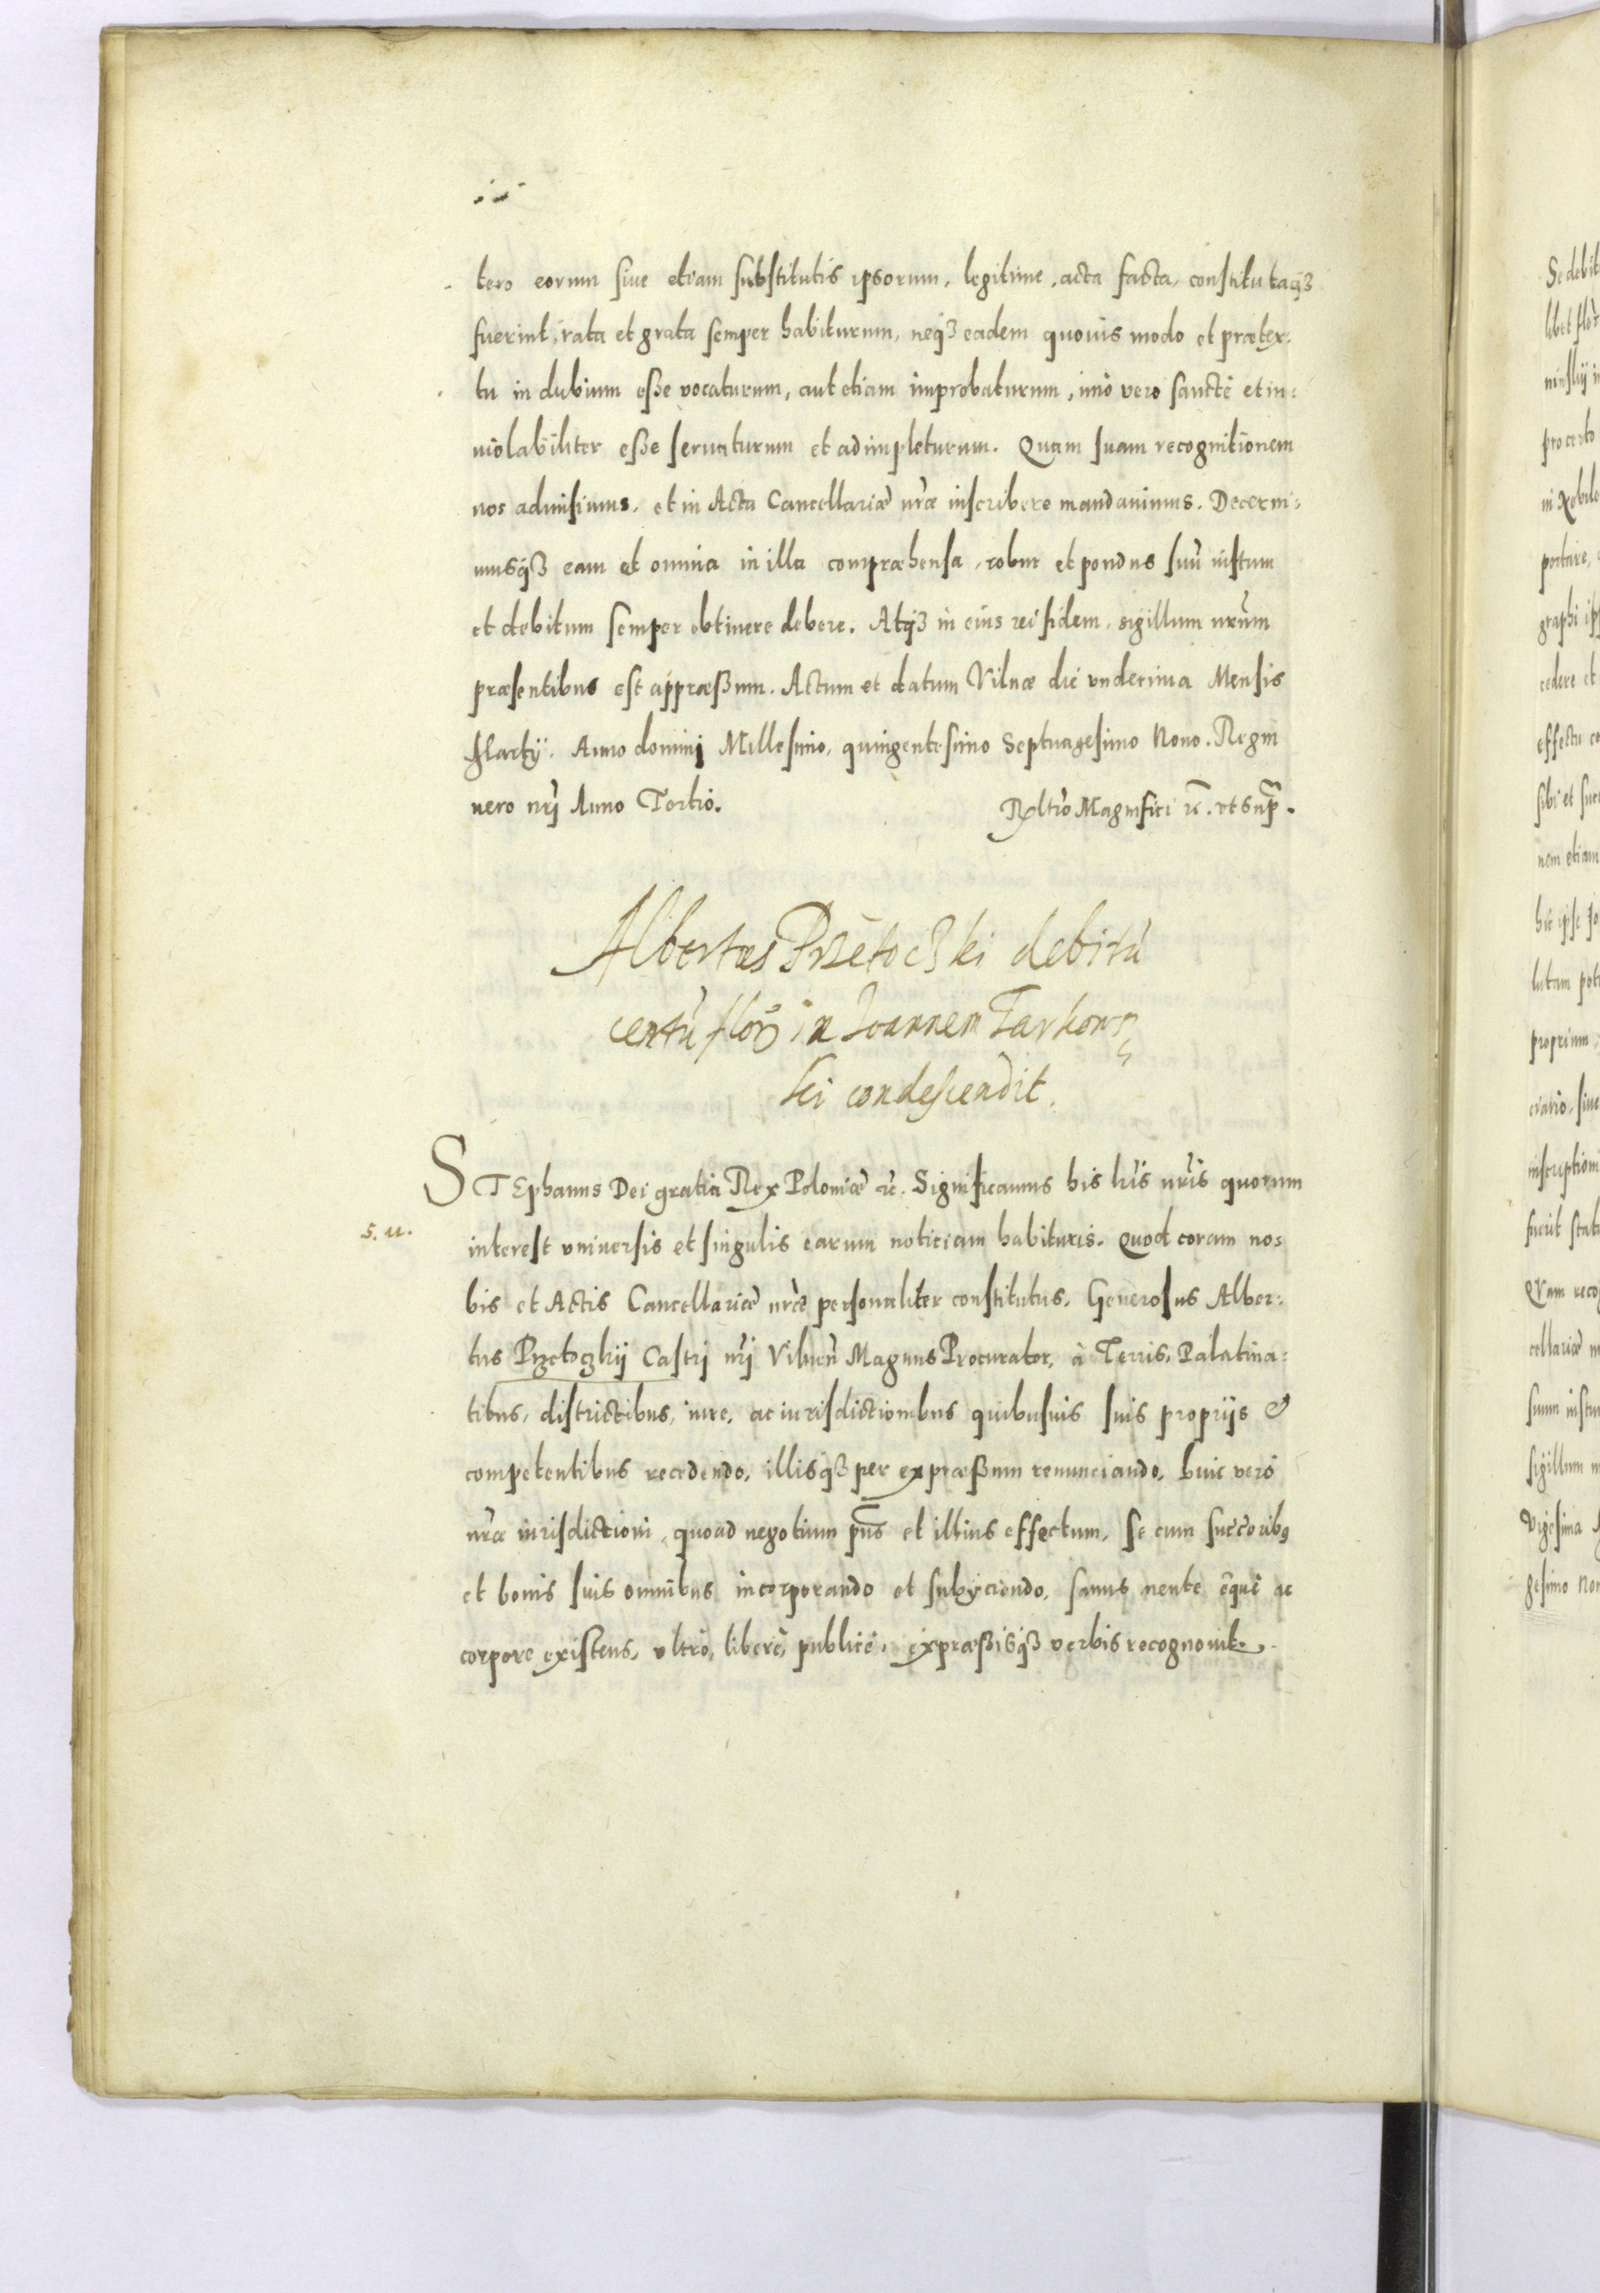 tero eorum siue etiam substitutis ipsorum, legitime, acta facta, constitutaq3
fuerint, rata et grata semper habiturum, neq3 eadem quouis modo et prætex:
tu in dubium eße vocaturum, aut etiam improbaturum, imò vero sanctè et in:
uiolabiliter eße seruaturum et adimpleturum. Quam suam recognitionem
nos admisimus, et in Acta Cancellariæ nr̃æ inscribere mandauimus. Decerni:
musq3 eam et omnia in illa compræhensa, robur et pondus suũ iustum
et debitum semper obtinere debere. Atq3 in eius rei fidem, sigillum nr̃um
præsentibus est appræßum. Actum et datum Vilnæ die vndecima Mensis
Martij. Anno domini Millesimo, quingentesimo Septuagesimo Nono. Regni
uero nr̃j Anno Tertio. Reltio Magnifici rc̃. vt supr̃.
Albertus Przetoczki debitũ
centũ flor in Ioannem Tarkow
ski condescendit.
STEphanus Dei gratia Rex Poloniæ rc̃. Significamus his lr̃is nr̃is quorum
s. u.
interest vniuersis et singulis earum noticiam habituris. Quod coram no:
bis et Actis Cancellariæ nr̃æ personaliter constitutus, Generosus Alber:
tus Przetoczkij Castrj nr̃j Vilneñ Magnus Procurator, à Terris, Palatina:
tibus, districtibus, iure, ac iurisdictionibus quibusuis suis proprijs &
competentibus recedendo, illisq3 per expræßum renunciando, huic verò
nr̃æ iurisdictioni, quoad negotium pñs et illius effectum, se cum succoribq
et bonis suis omnibus incorporando et subijciendo, sanus mente équè ac
corpore existens, vltrò, liberè, publicè, expræßisq3 verbis recognouit.